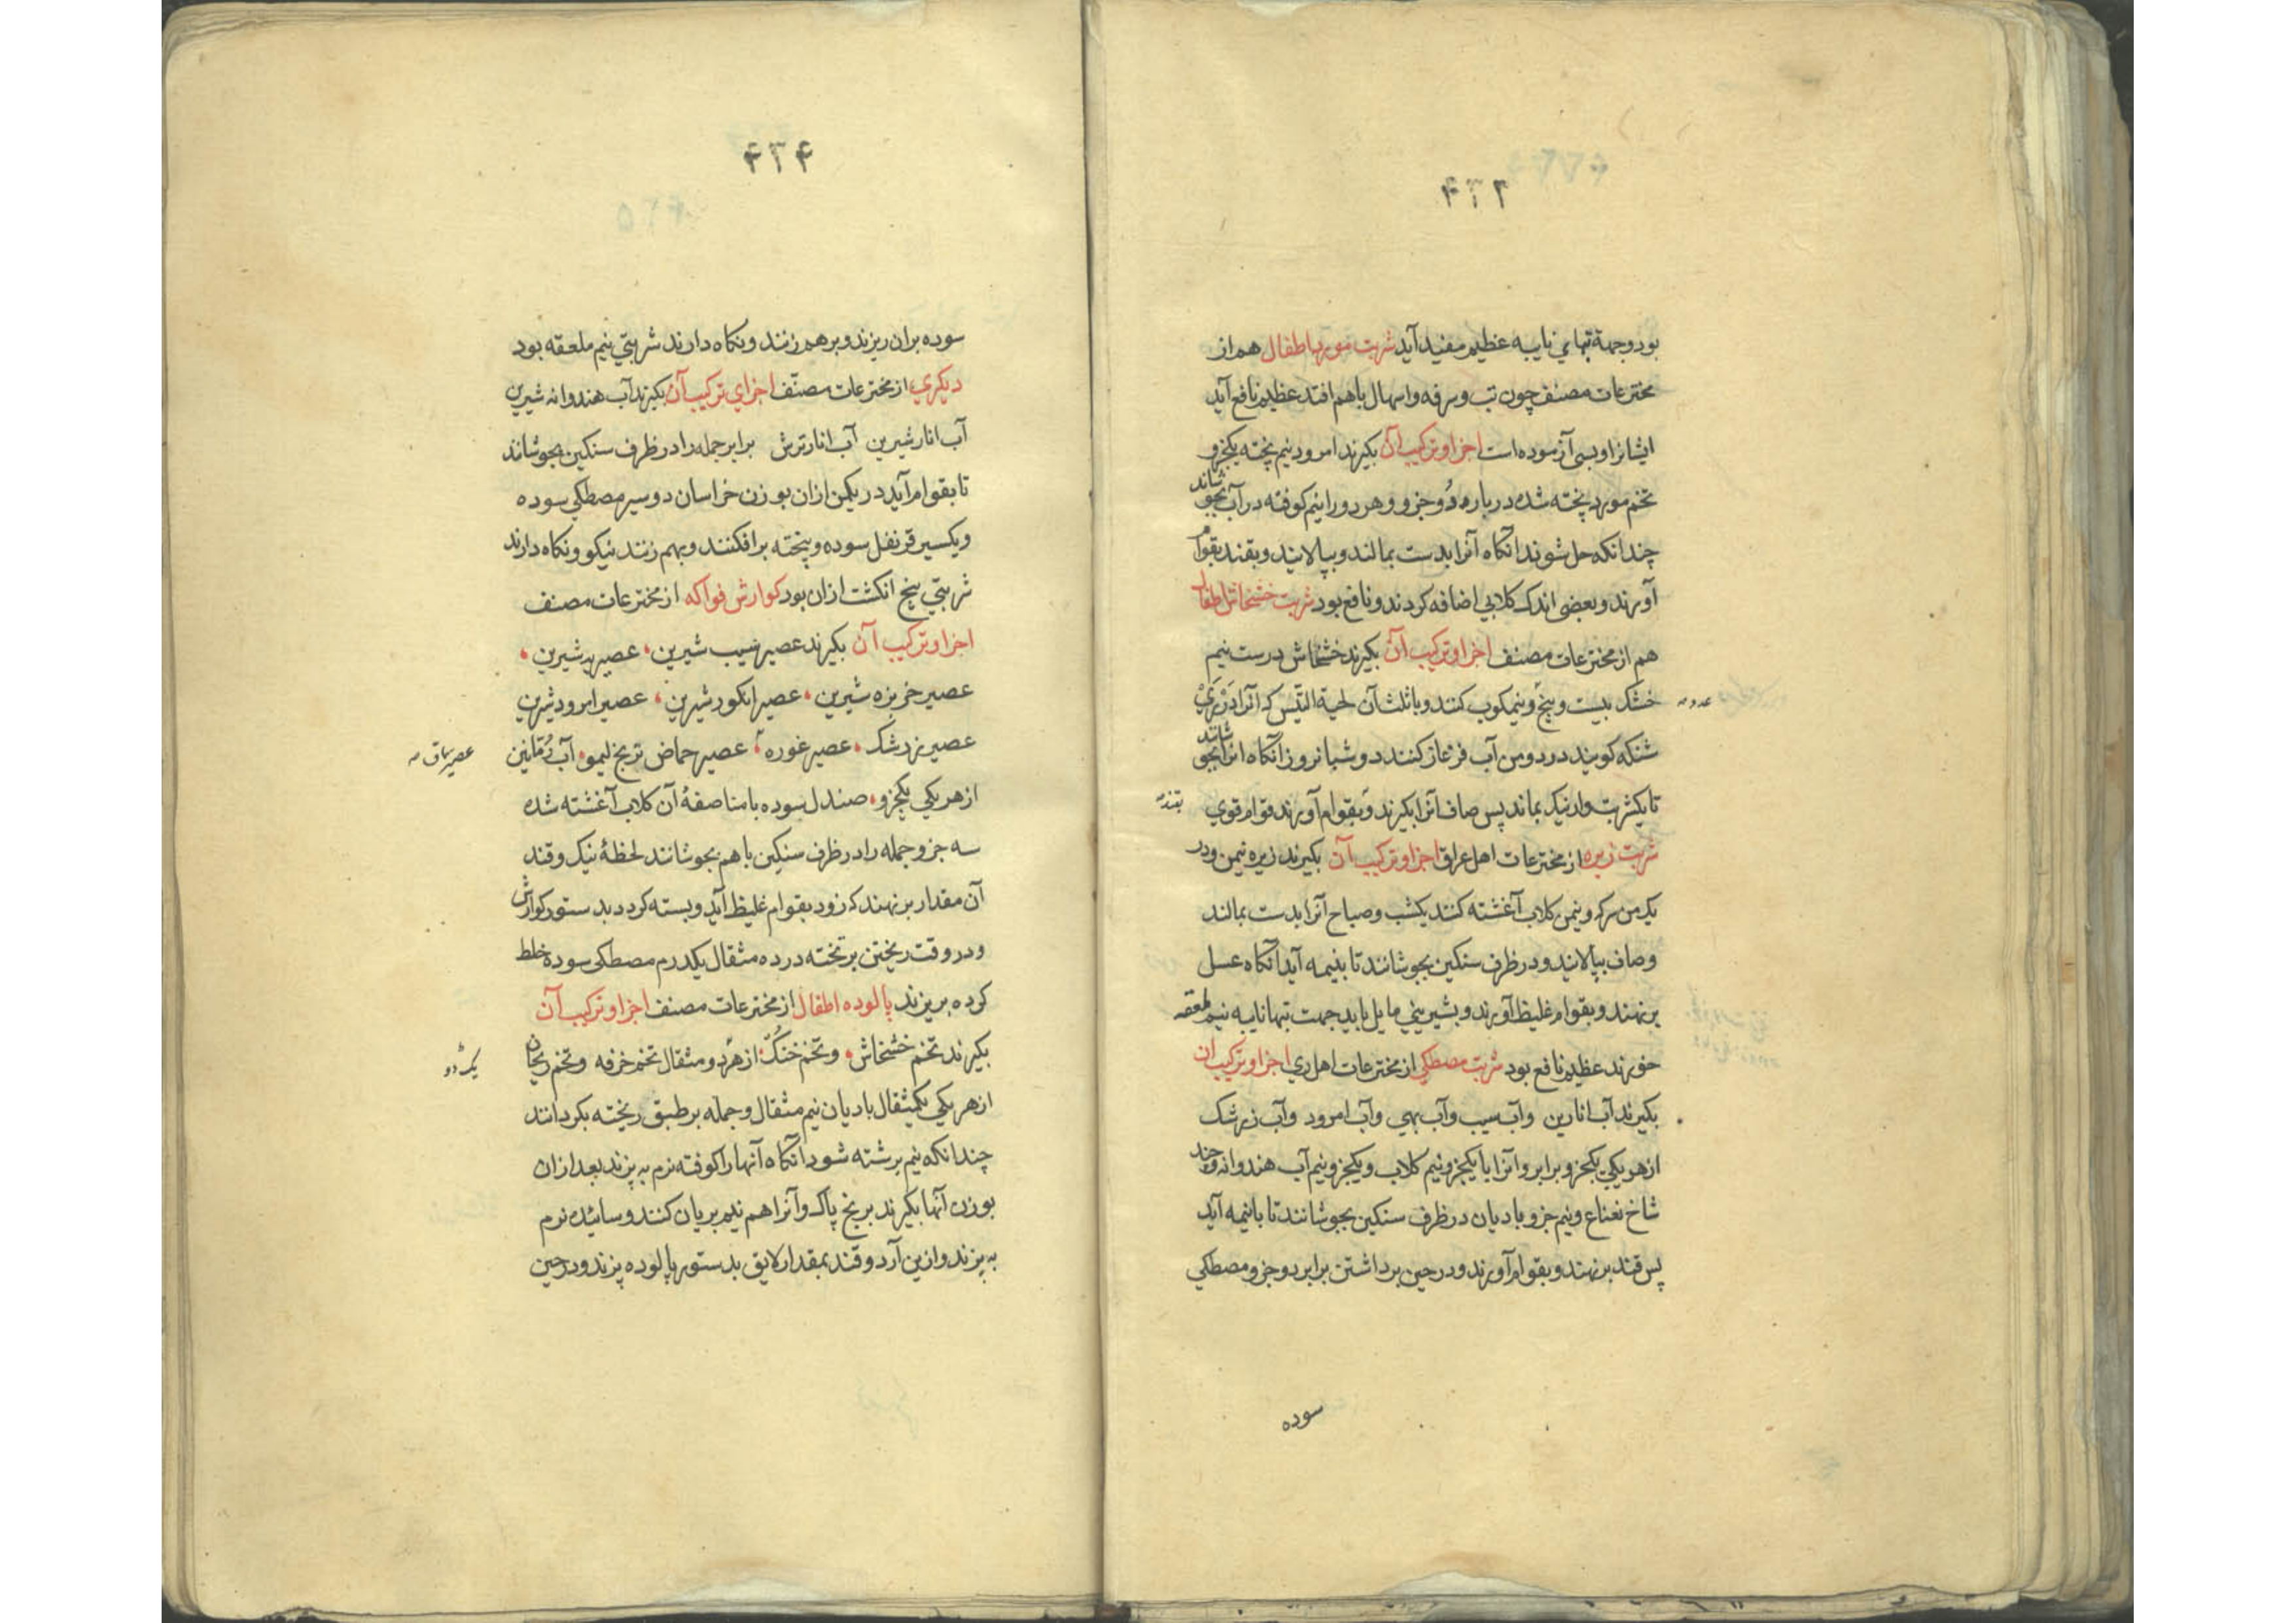 بود و جهة تبهای نایبه عظیم مفید آید شربت مورد اطفال هم از
مخترعات مصنف چون تب و سرفه و اسهال با هم افتد عظیم نافع آید
ایشانرا و بسی آزموده است اجزا و ترکیب آن بکیرند امرود نیم پخته یکجزو
تخم مورد پخته شده درباره دو جزو و هر دو را نیم کوفته در آب بجوشاند
چندانکه حل شوند آنکاه آنرا بدست بمالند و بپالایند و بقند بقوام
آورند و بعضی اندک کلابی اضافه کردند و نافع بود شربت خشخاش اطفال
هم از مخترعات مصنف اجزا و ترکیب آن بکیرند خشخاش درست نیم
خشک بیست و پنج و نیمکوب کنند و با ثلث آن لحیة التیس که آنرا در ری
شنکه کویند در دو من آب فرغار کنند دو شبانروز آنکاه انرا بجوشانند
تا یکشربت وار نیک بماند پس صاف آنرا بکیرند و بقوام آورند قوام قوی
بقند
شربت زیره از مخترعات اهل عراق اجزا و ترکیب آن بکیرند زیره نیمن و در
یک من سرکه و نیمن کلاب آغشته کنند یکشب و صباح آنرا بدست بمالند
و صاف بپالایند و در ظرف سنکین بجوشانند تا بنیمه آید آنکاه عسل
برنهند و بقوام غلیظ آورند و بشیرینی مایل باید جهت تبها نایبه نیم ملعقه
خورند عظیم نافع بود شربت مصطکی از مخترعات اهل ری اجزا و ترکیب ان
بکیرند آب انارین و آب سیب و آب بهی و آب امرود و آب زرشک
از هر یکی یکجزو برابر و آنرا با یکجزو نیم کلاب و یکجزو نیم آب هندوانه و چند
شاخ نعناع و نیم جزو بادیان در ظرف سنکین بجوشانند تا بانیمه آید
پس قند برنهند و بقوام آورند و در حین برداشتن برابر دو جزو مصطکی
سوده
۴۳۴
سوده بران ریزند و برهم زنند و نکاه دارند شربتی نیم ملعقه بود
دیکری از مخترعات مصنّف اجزای ترکیب آن بکیرند آب هندوانه شیرین
آب انار شیرین آب انار ترش برابر جمله را در ظرف سنکین بجوشاند
تا بقوام آید در یکمن ازان بوزن خراسان دو سیر مصطکی سوده
و یکسیر قرنفل سوده و بیخته برافکنند و بهم زنند نیکو و نکاه دارند
شربتی پنج انکشت ازان بود کوارش فواکه از مخترعات مصنف
اجزا و ترکیب آن بکیرند عصیر سیب شیرین عصیر به شیرین
عصیر خربزه شیرین عصیر انکور شیرین عصیر امرود شیرین
عصیر زرشک عصیر غوره عصیر حماض ترنج لیمو آب رمّانین
عصیر سماق
از هر یکی یکجزو صندل سوده با مناصفهٔ آن کلاب آغشته شده
سه جزو جمله را در ظرف سنکین با هم بجوشانند لحظهٔ نیک و قند
آن مقدار برنهند که زود بقوام غلیظ آید و بسته کردد بدستور کوارش
و در وقت ریختن بر تخته در ده مثقال یکدرم مصطکی سوده خلط
کرده بریزند پالوده اطفال از مخترعات مصنف اجزا و ترکیب آن
بکیرند تخم خشخاش و تخم خنک از هر دو مثقال تخم خرفه و تخم ریحان
از هر یکی یکمثقال بادیان نیم مثقال و جمله بر طبق ریخته بکردانند
چندانکه نیم برشته شود آنکاه آنها را کوفته نرم به پزند بعد ازان
بوزن آنها بکیرند برنج پاک و آنرا هم نیم بریان کنند و سائیده نرم
به پزند و ازین آرد و قند بمقدار لایق بدستور پالوده پزند و در حین